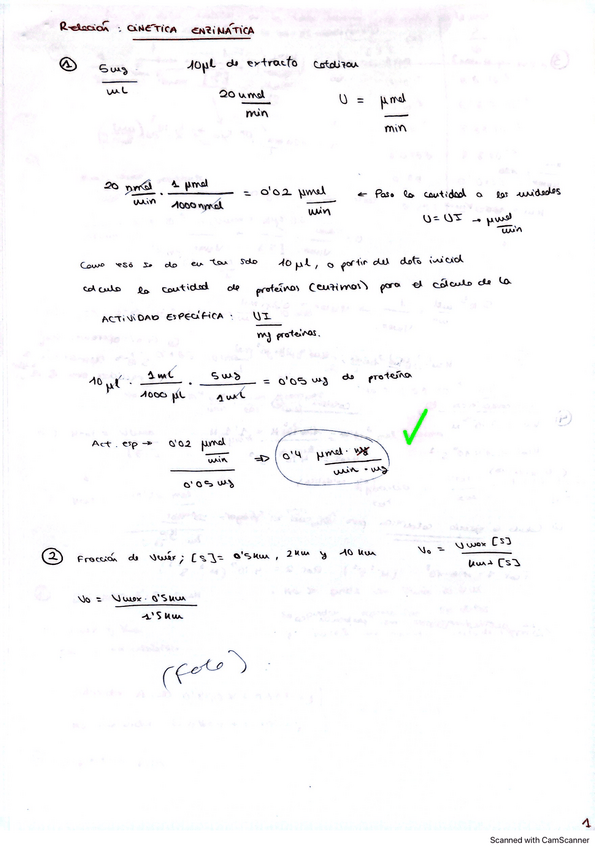 Relación: CINÉTICA ENZIMÁTICA
① 5mg/mL 10µl de extracto catalizan
20 nmol/min U = µmol/min
20 nmol/min · 1 µmol/1000 nmol = 0'02 µmol/min ← Paso la cantidad a las unidades
U = UI → µmol/min
Como eso se da en tan solo 10 µl, a partir del dato inicial
calculo la cantidad de proteínas (enzimas) para el cálculo de la
ACTIVIDAD ESPECÍFICA: UI/mg proteínas.
10 µl · 1 mL/1000 µL · 5mg/1mL = 0'05 mg de proteína
Act. esp → 0'02 µmol/min / 0'05 mg ⇒ 0'4 µmol · mg/min · mg ✓
② Fracción de Vmáx; [S]= 0'5Km, 2Km y 10 Km V₀ = Vmax [S]/Km+[S]
V₀ = Vmax · 0'5Km/1'5Km
(Foto)
1
Scanned with CamScanner